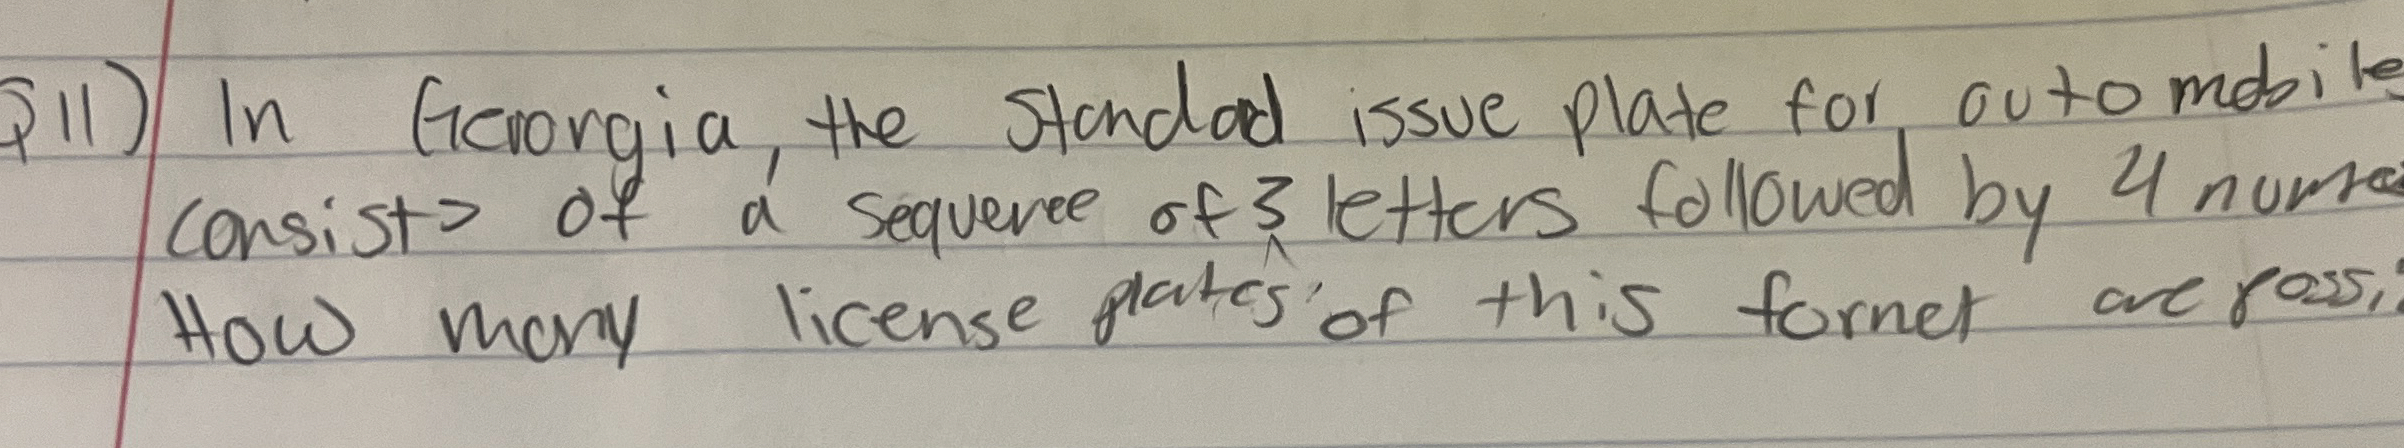 Q11) In Georgia, the Standard issue plate for automobile
consists of a sequence of 3 letters followed by 4 nume
How many license plates of this format are possi